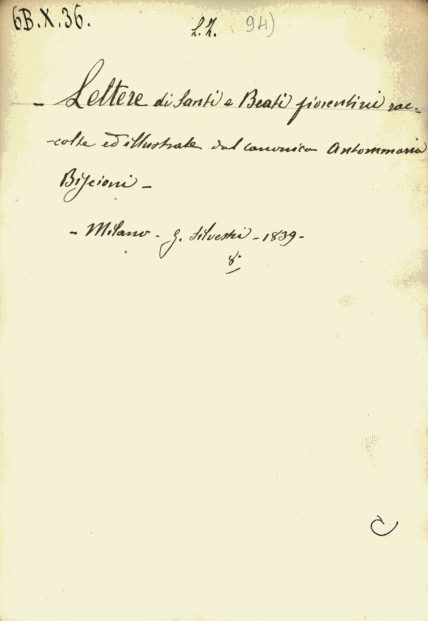 6B.X.36.
94)
- Lettere di Santi e Beati fiorentini rac=
-colte ed illustrate dal canonico Antommaria
Biscioni -
- Milano - G. Silvestri - 1839 -
8°
C